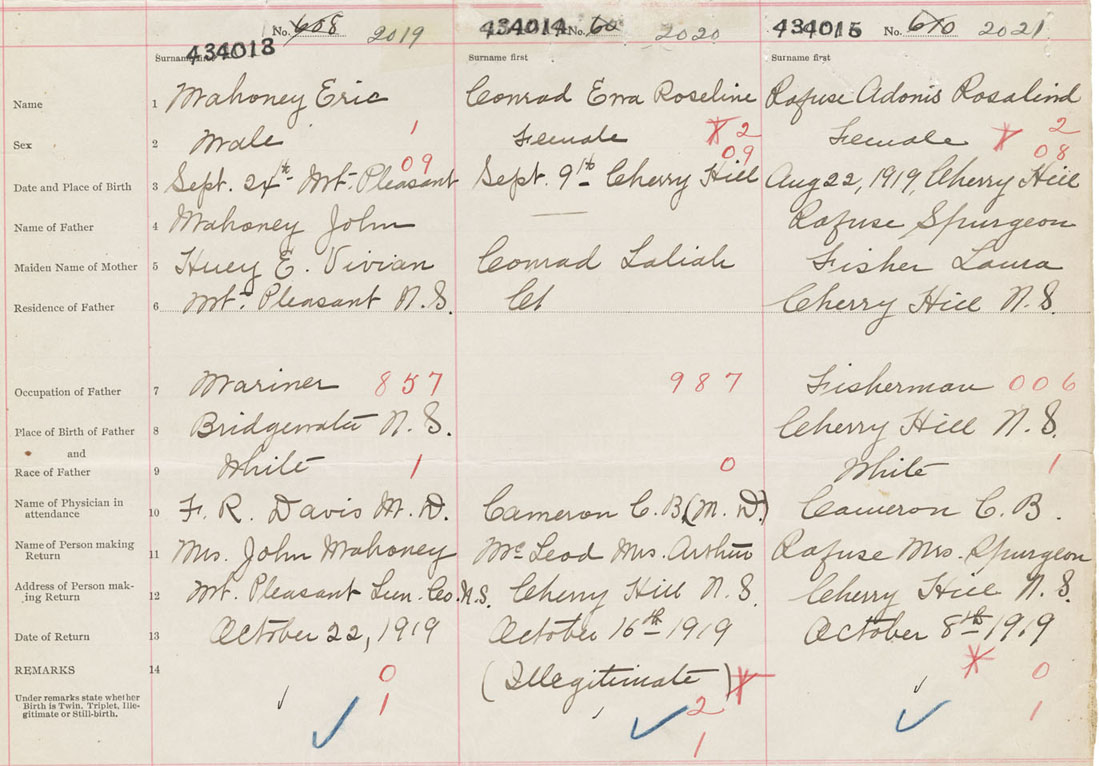 No. 608 2019 434014 No. 60 2020 434015 No. 610 2021
434013
Surname first Surname first Surname first
Name 1 Mahoney Eric Conrad Erra Roseline Rafuse Adonis Rosalind
Sex 2 Male 1 Female 2 Female 2
09 09 08
Date and Place of Birth 3 Sept. 24th Mt. Pleasant Sept. 9th Cherry Hill Aug 22, 1919, Cherry Hill
Name of Father 4 Mahoney John Rafuse Spurgeon
Maiden Name of Mother 5 Huey E. Vivian Conrad Laliah Fisher Laura
Residence of Father 6 Mt. Pleasant N.S. Ch Cherry Hill N.S.
Occupation of Father 7 Mariner 857 987 Fisherman 006
Place of Birth of Father 8 Bridgewater N.S. Cherry Hill N.S.
and
Race of Father 9 White 1 0 White 1
Name of Physician in
attendance 10 F. R. Davis M.D. Cameron C. B. (M.D.) Cameron C. B.
Name of Person making
Return 11 Mrs. John Mahoney McLeod Mrs. Arthur Rafuse Mrs. Spurgeon
Address of Person mak-
ing Return 12 Mt. Pleasant Lun. Co. N.S. Cherry Hill N.S. Cherry Hill N.S.
Date of Return 13 October 22, 1919 October 16th 1919 October 8th 1919
REMARKS 14 0 (Illegitimate) 0
Under remarks state whether
Birth is Twin, Triplet, Ille-
gitimate or Still-birth. 1 2 1
1